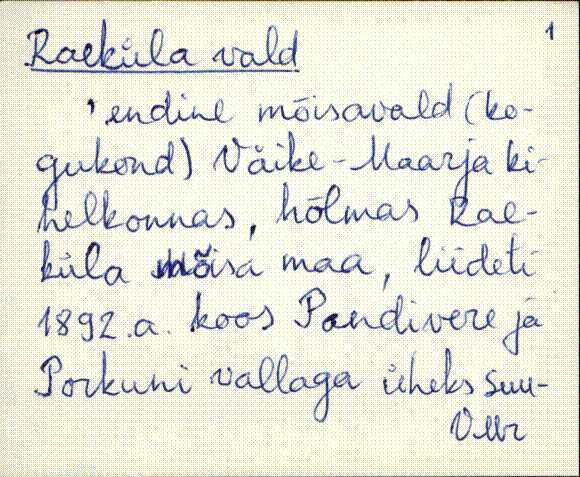 1
Raeküla vald
, endine mõisavald (ko-
gukond) Väike-Maarja ki-
helkonnas, hõlmas Rae-
küla mõisa maa, liideti
1892.a. koos Pandivere ja
Porkuni vallaga üheks suu-
VMr